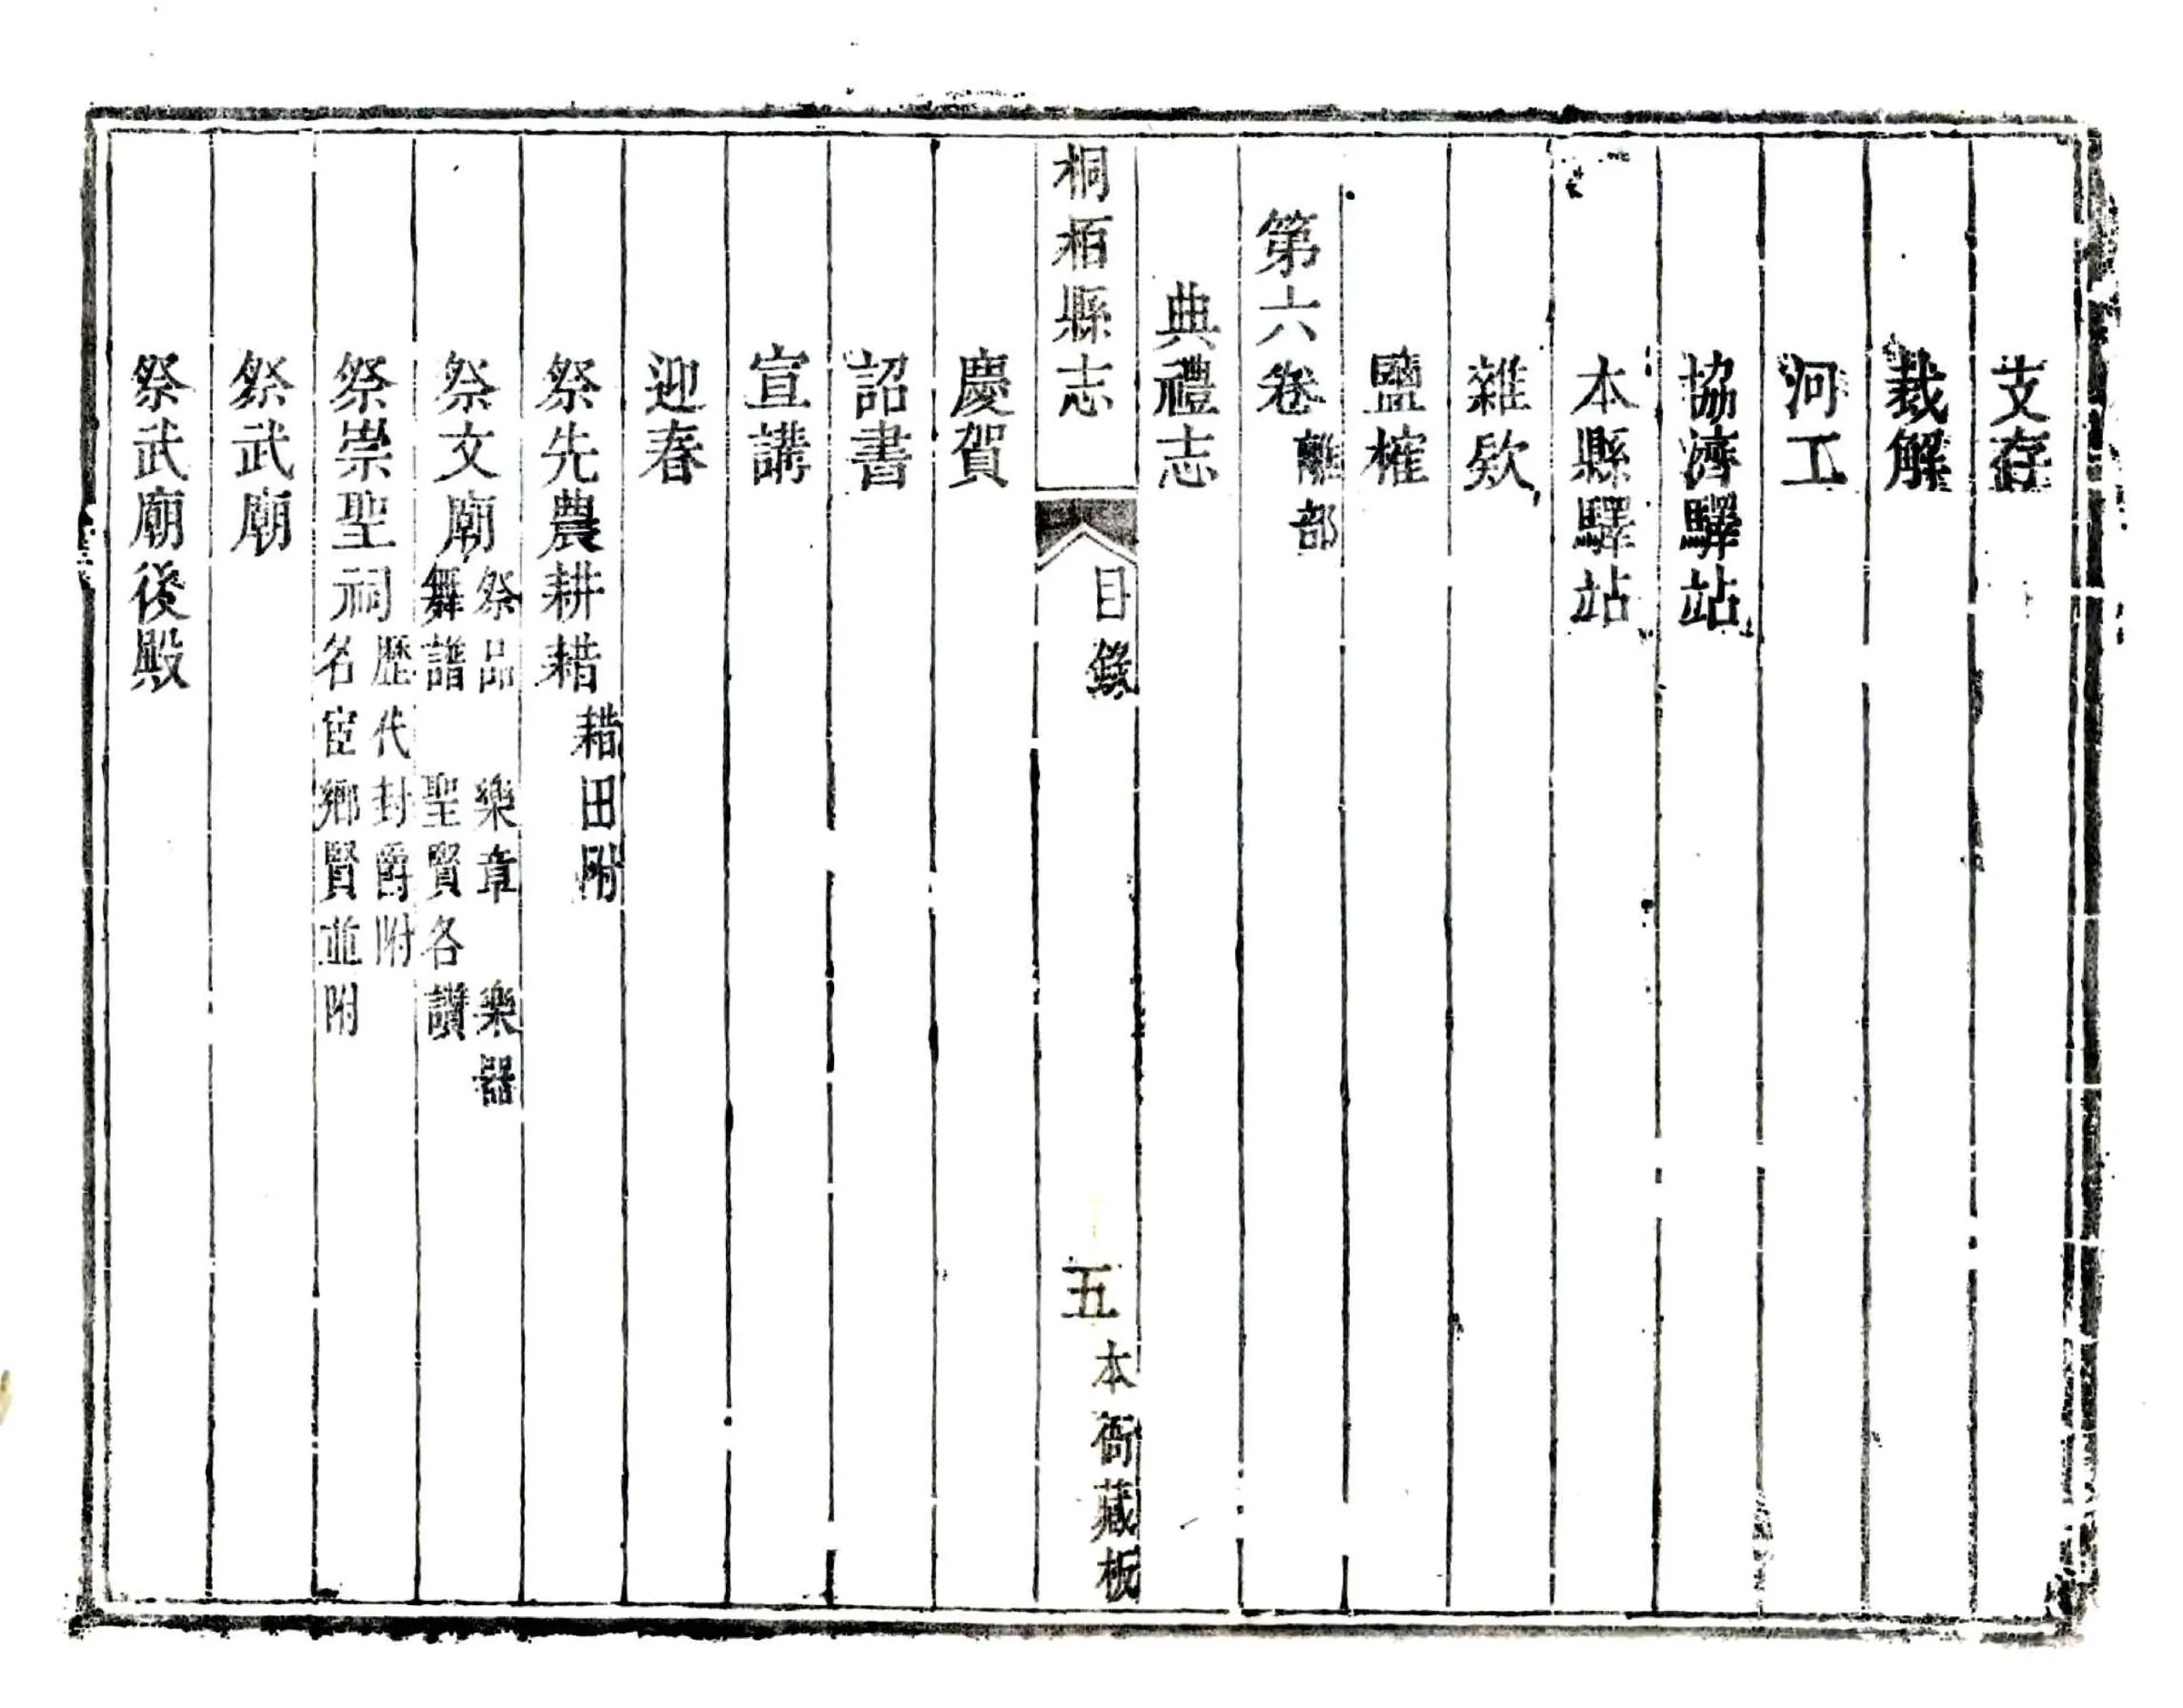 支存
裁解
河工
協濟驛站
本縣驛站
雜欵
鹽榷
第六卷 離部
典禮志
桐栢縣志
目錄
五
本衙藏板
慶賀
詔書
宣講
迎春
祭先農耕耤 耤田附
祭文廟 祭品 樂章 樂器
舞譜 聖賢各讚
祭崇聖祠 歷代封爵附
名宦鄉賢並附
祭武廟
祭武廟後殿